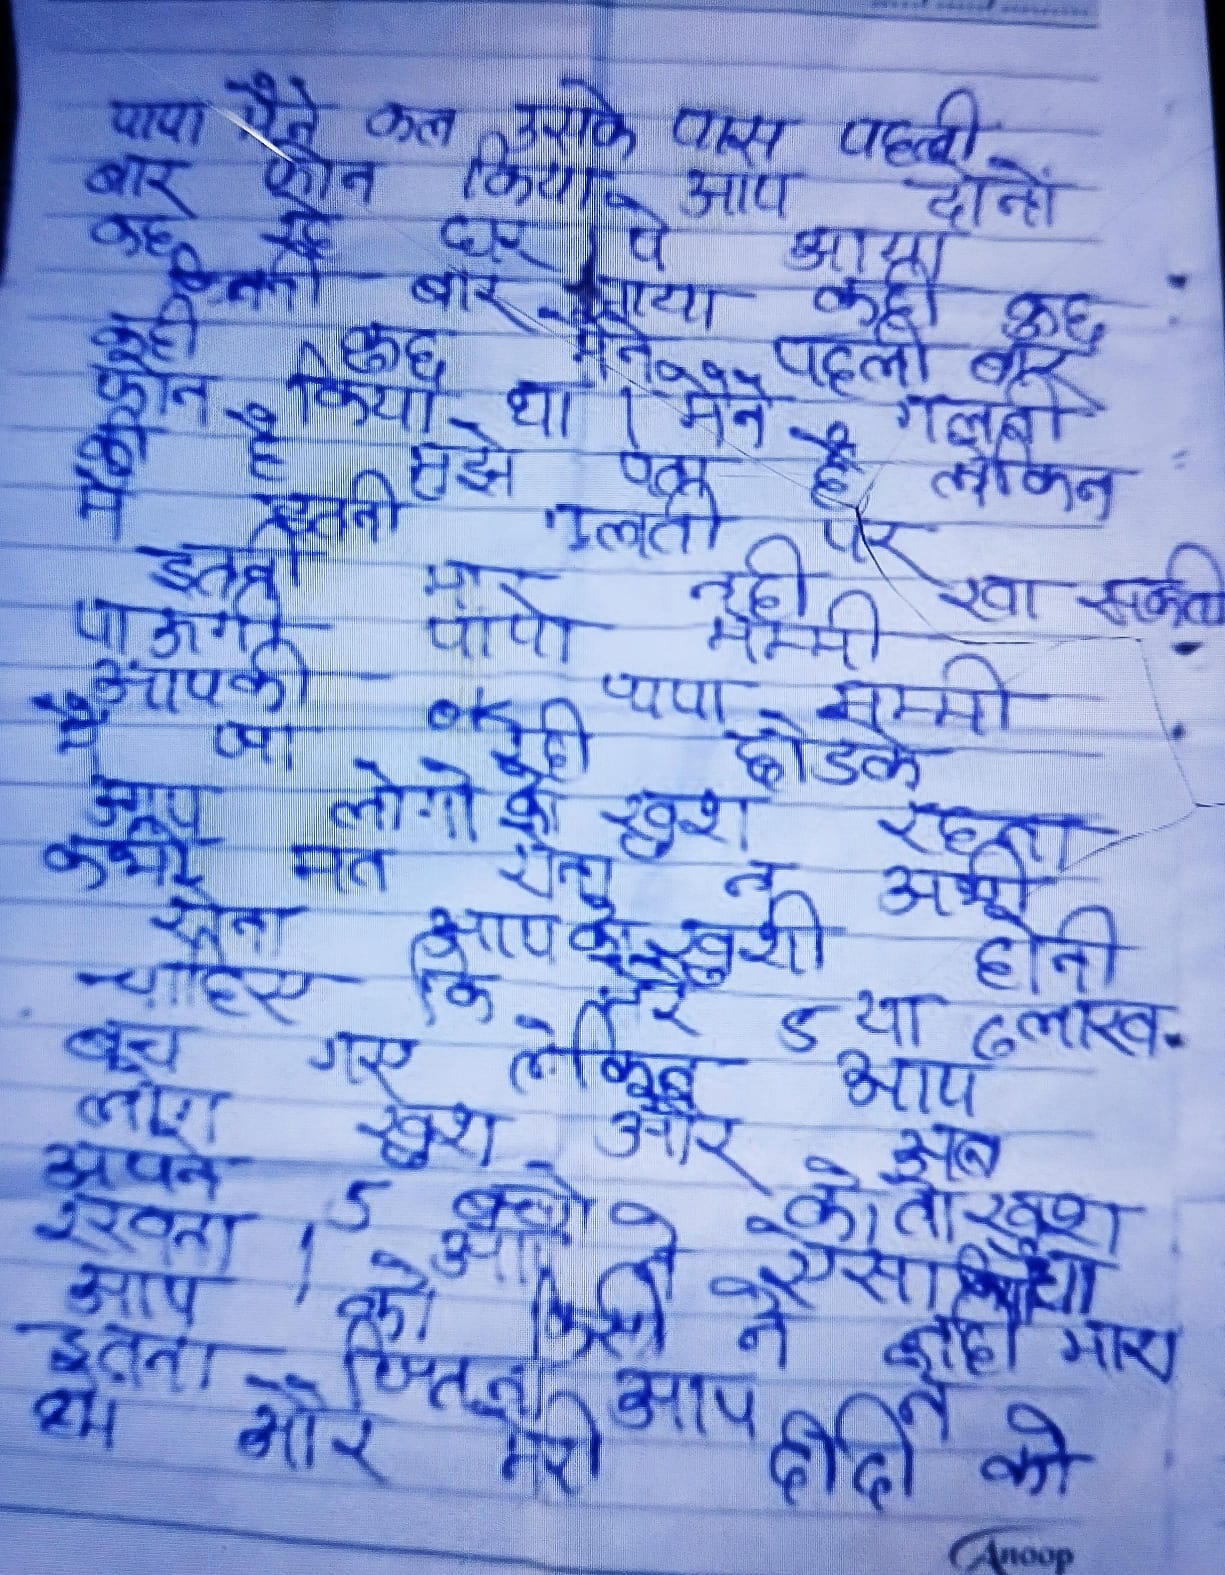 पापा मैंने कल उसके पास पहली
बार फोन किया आप दोनों
कह रहे घर पे आया
कितनी बार आया कही कुछ
कही कुछ मैंने पहली बार
फोन किया था। मैंने गलती
की है मुझे पता है लेकिन
मैं इतनी गलती पर
इतनी मार नही खा सकती
पाऊगी पापा मम्मी
आपकी पापा मम्मी
मैं जा रही छोडके
आप लोगो को खुश रहना
कभी मत रोना न अभी
रोना आपको खुशी होनी
चाहिए कि मेरे 5 या 6 लाख
बच गए लेकिन आप
लोग खुश और अब
अपने 5 बच्चो को तो खुश
रखना। ऐसा
आप को किसी ने नही मारा
इतना जितना आप ने
हम और मेरी दीदी को
Anoop